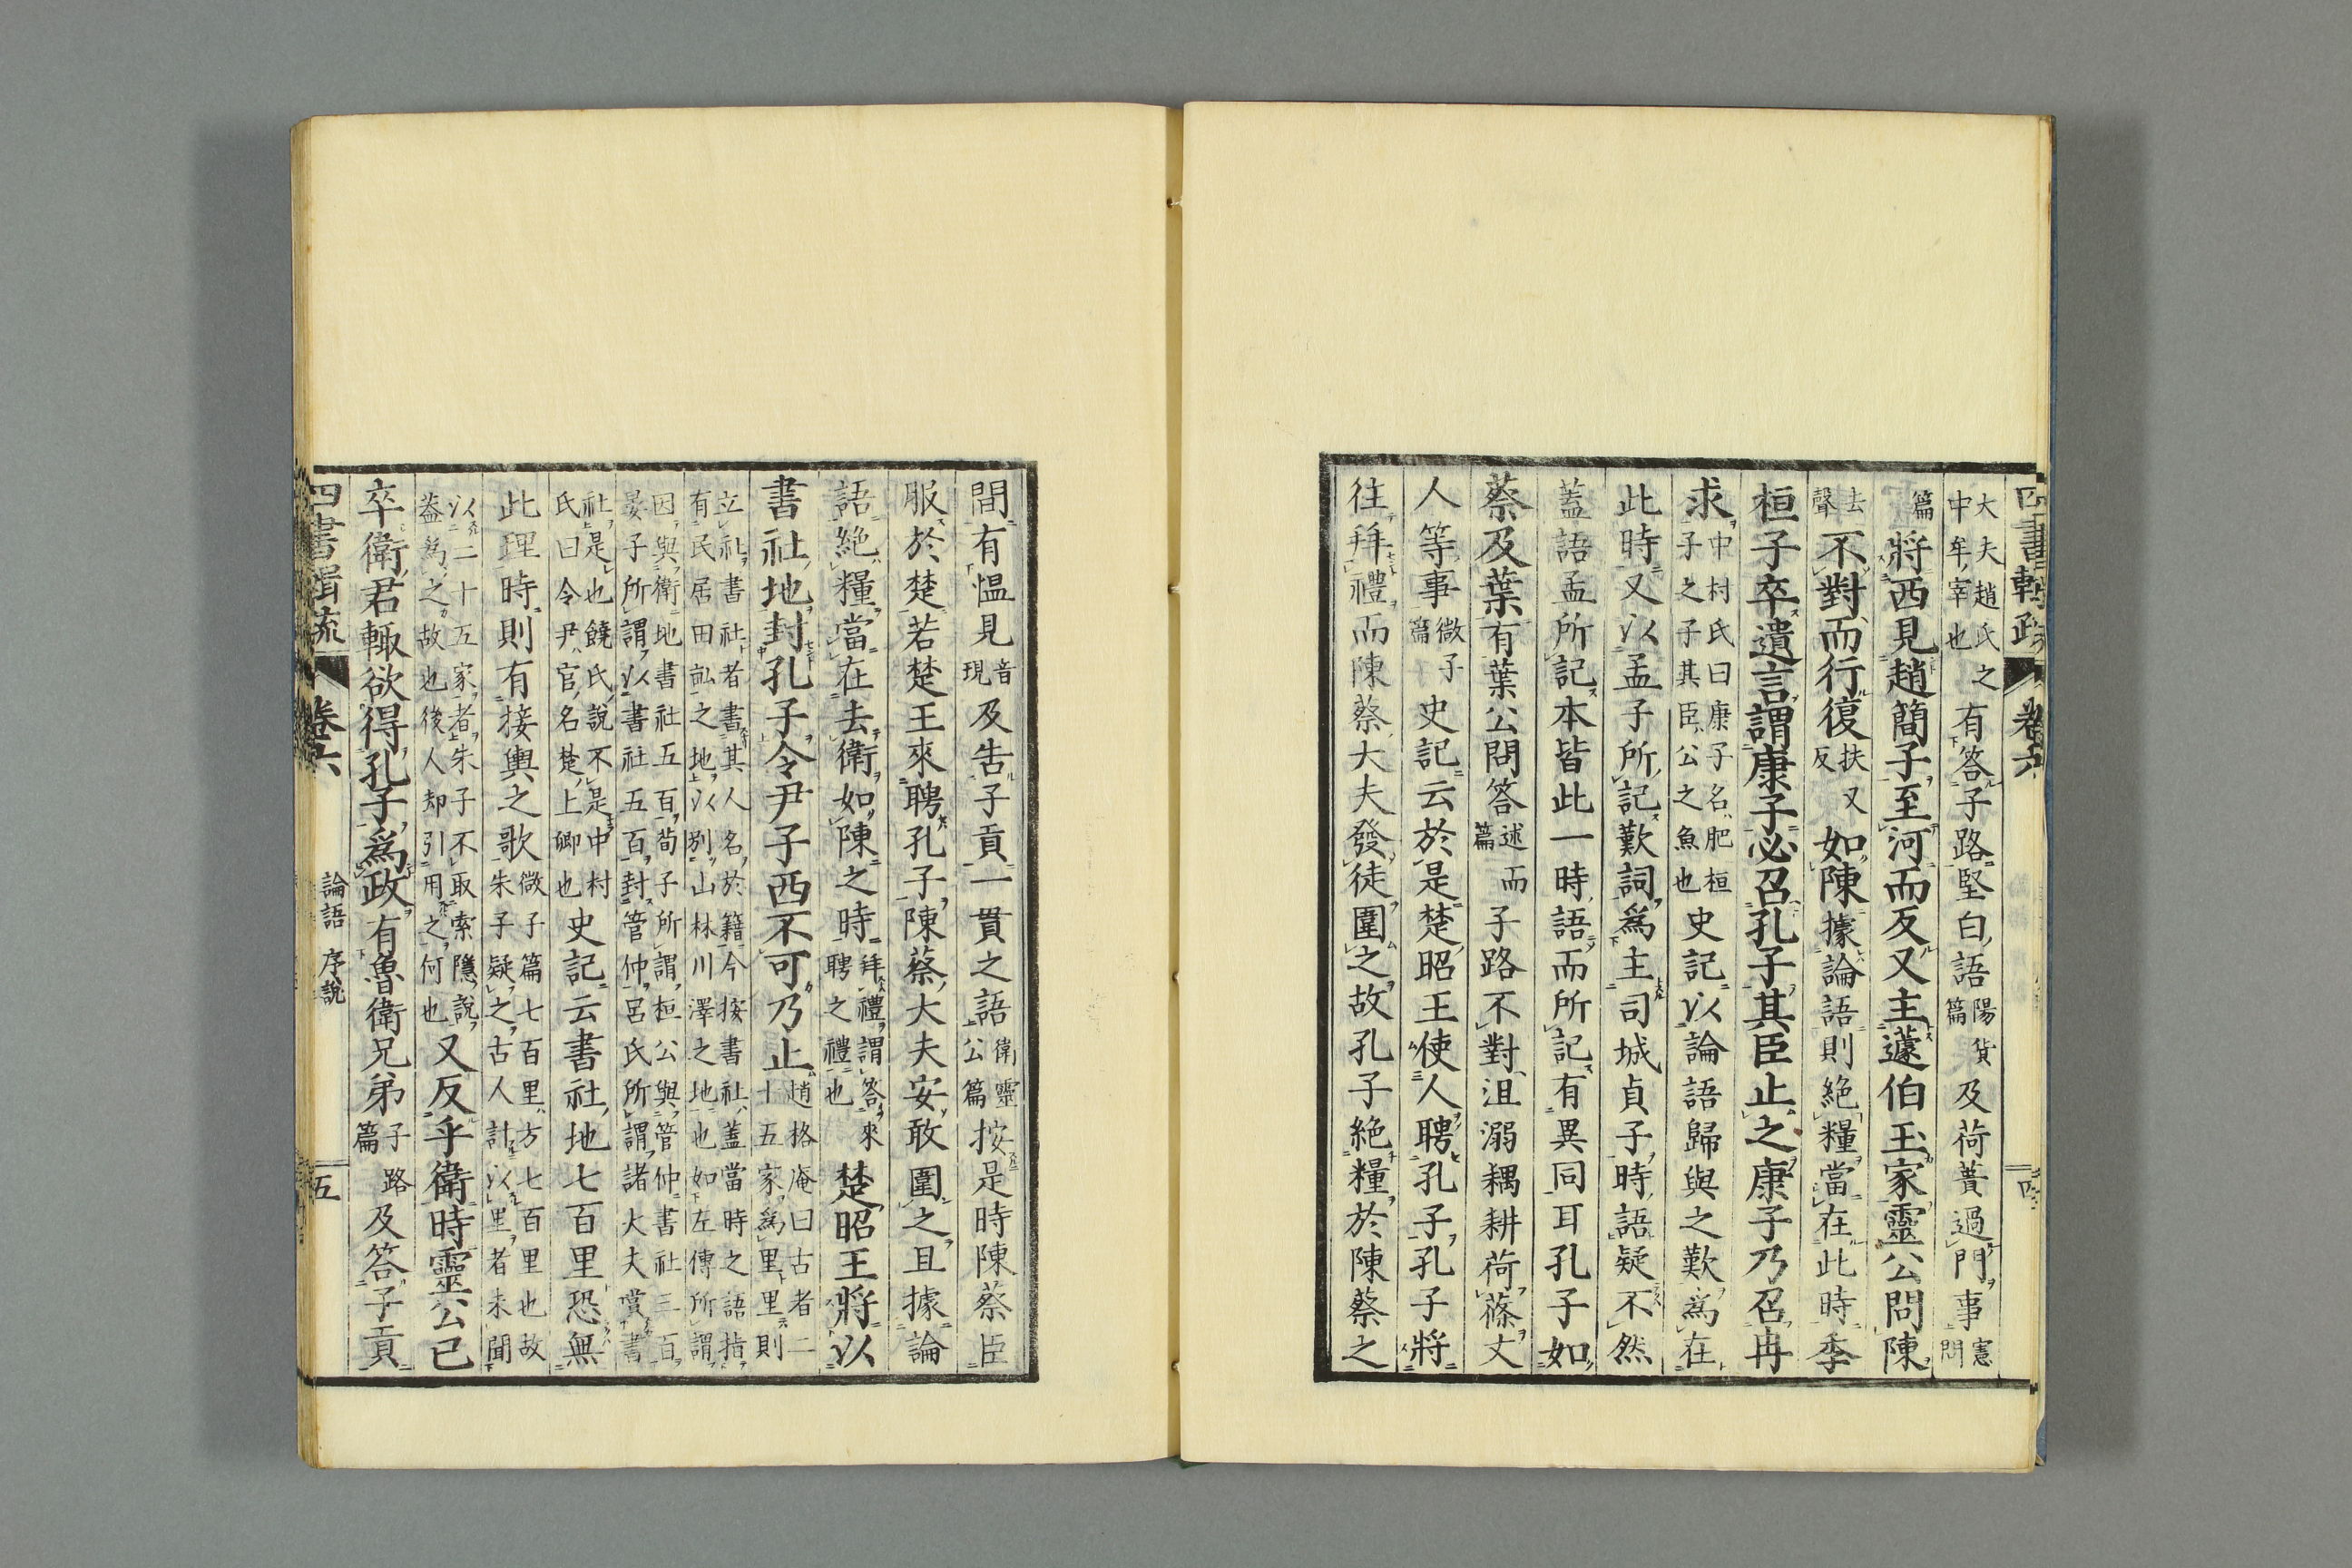 四書輯疏 卷六 四
大夫趙氏之中牟宰也有答子路堅白語陽貨篇及荷蕢過門事憲問
篇將西見趙簡子至河而反又主蘧伯玉家靈公問陳
去聲不對而行復扶又反如陳據論語則絶糧當在此時季
桓子卒遺言謂康子必召孔子其臣止之康子乃召冉
求中村氏曰康子名肥桓子之子其臣公之魚也史記以論語歸與之歎爲在
此時又以孟子所記歎詞爲主司城貞子時語疑不然
蓋語孟所記本皆此一時語而所記有異同耳孔子如
蔡及葉有葉公問答述而篇子路不對沮溺耦耕荷蓧丈
人等事微子篇史記云於是楚昭王使人聘孔子孔子將
往拜禮而陳蔡大夫發徒圍之故孔子絶糧於陳蔡之
間有愠見音現及告子貢一貫之語衛靈公篇按是時陳蔡臣
服於楚若楚王來聘孔子陳蔡大夫安敢圍之且據論
語絶糧當在去衛如陳之時拜禮謂答來聘之禮也楚昭王將以
書社地封孔子令尹子西不可乃止趙格庵曰古者二十五家爲里里則
立社書社者書其人名於籍今按書社蓋當時之語指
有民居田畝之地以別山林川澤之地也如左傳所謂
因與衛地書社五百荀子所謂桓公與管仲書社三百
晏子所謂以書社五百封管仲呂氏所謂諸大夫賞書
社是也饒氏說不是中村氏曰令尹官名楚上卿也史記云書社地七百里恐無
此理時則有接輿之歌微子篇七百里方七百里也故朱子疑之古人計以里者未聞
以二十五家者朱子不取索隱說蓋爲之故也後人却引用之何也又反乎衛時靈公已
卒衛君輒欲得孔子爲政有魯衛兄弟子路篇及答子貢
四書輯疏 卷六 論語 序說 五